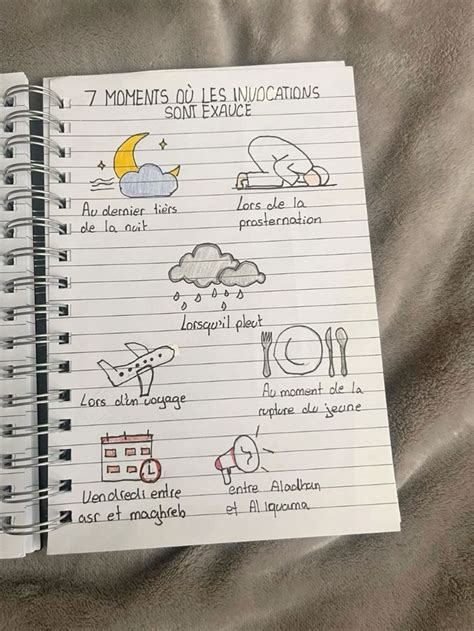 7 MOMENTS OÙ LES INVOCATIONS
SONT EXAUCÉ
Au dernier tièrs
de la nuit
Lors de la
prosternation
Lorsqu'il pleut
Lors d'un voyage
Au moment de la
rupture du jeune
Vendredi entre
asr et maghreb
entre Aladhan
et Al iquama